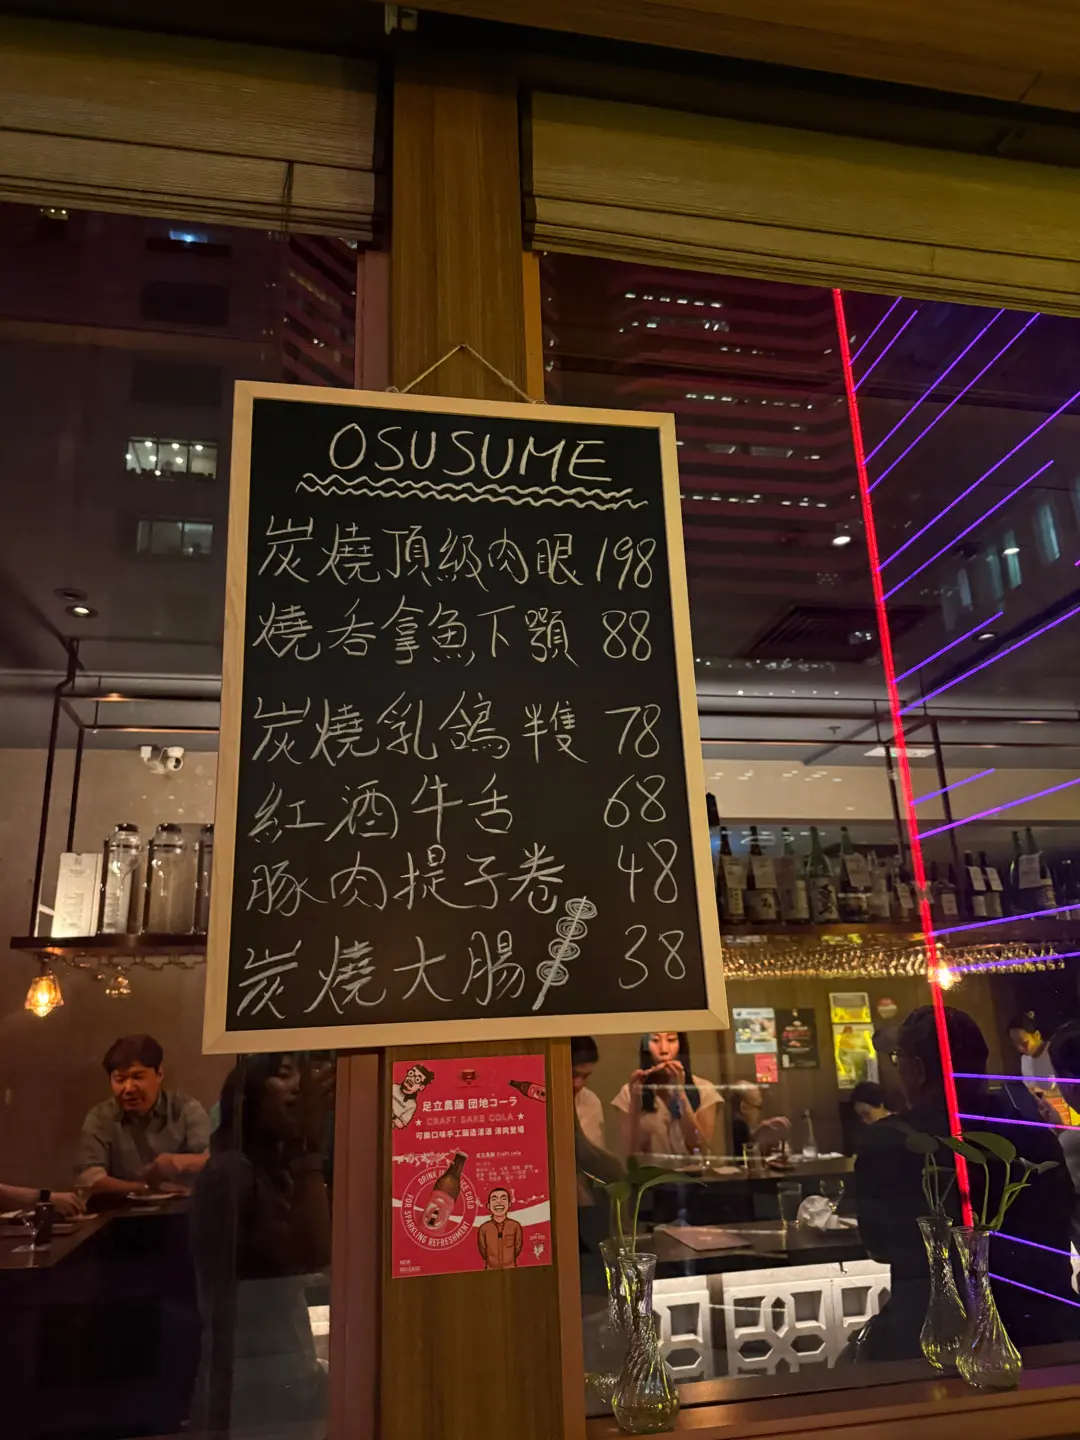 OSUSUME
炭燒頂級肉眼 198
燒吞拿魚下顎 88
炭燒乳鴿半隻 78
紅酒牛舌 68
豚肉提子卷 48
炭燒大腸 38
足立農醸 団地コーラ
★ CRAFT SAKE COLA ★
DRINK
FOR SPARKLING REFRESHMENT